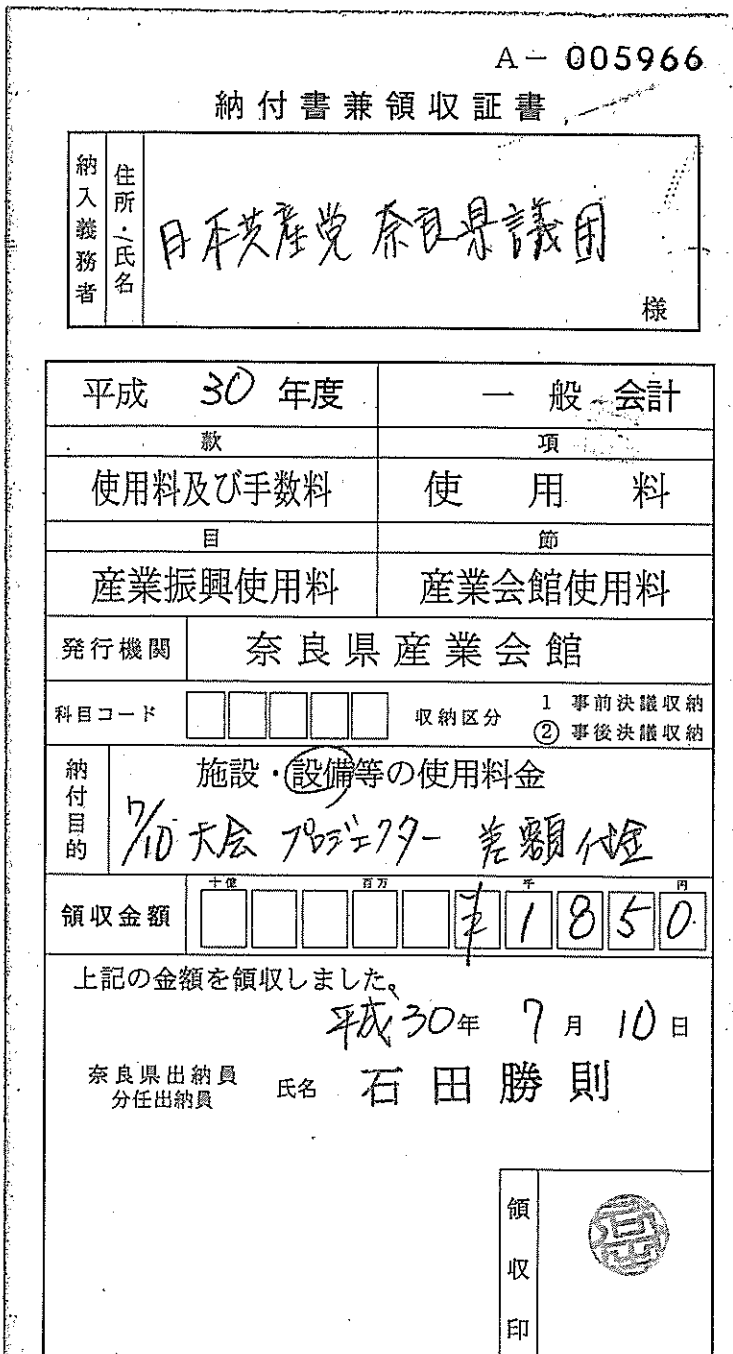 A－005966
納付書兼領収証書
納入義務者
住所・氏名
日本共産党 奈良県議団
様
平成 30 年度 一般 会計
款 項
使用料及び手数料 使用料
目 節
産業振興使用料 産業会館使用料
発行機関 奈良県産業会館
科目コード 収納区分 1 事前決議収納
② 事後決議収納
納付目的 施設・設備等の使用料金
7/10 大会 プロジェクター 差額
十億 百万 千 円
領収金額 ¥1850
上記の金額を領収しました。
平成30年 7月 10日
奈良県出納員
分任出納員 氏名 石田勝則
領収印